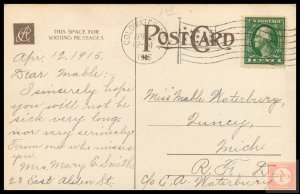 THIS SPACE FOR
WRITING MESSAGES
POSTCARD
COLDWATER
1915
1 CENT 1
Apr. 12, 1915.
Dear Mable:
I sincerely hope
you will not be
sick very long,
nor very seriously.
From one who misses
you.
Mrs. Mary C. Smith
23 East Alden St.
Miss Mable Waterbury,
Quncey,
Mich
R.F.D
c/o C.A. Waterbury